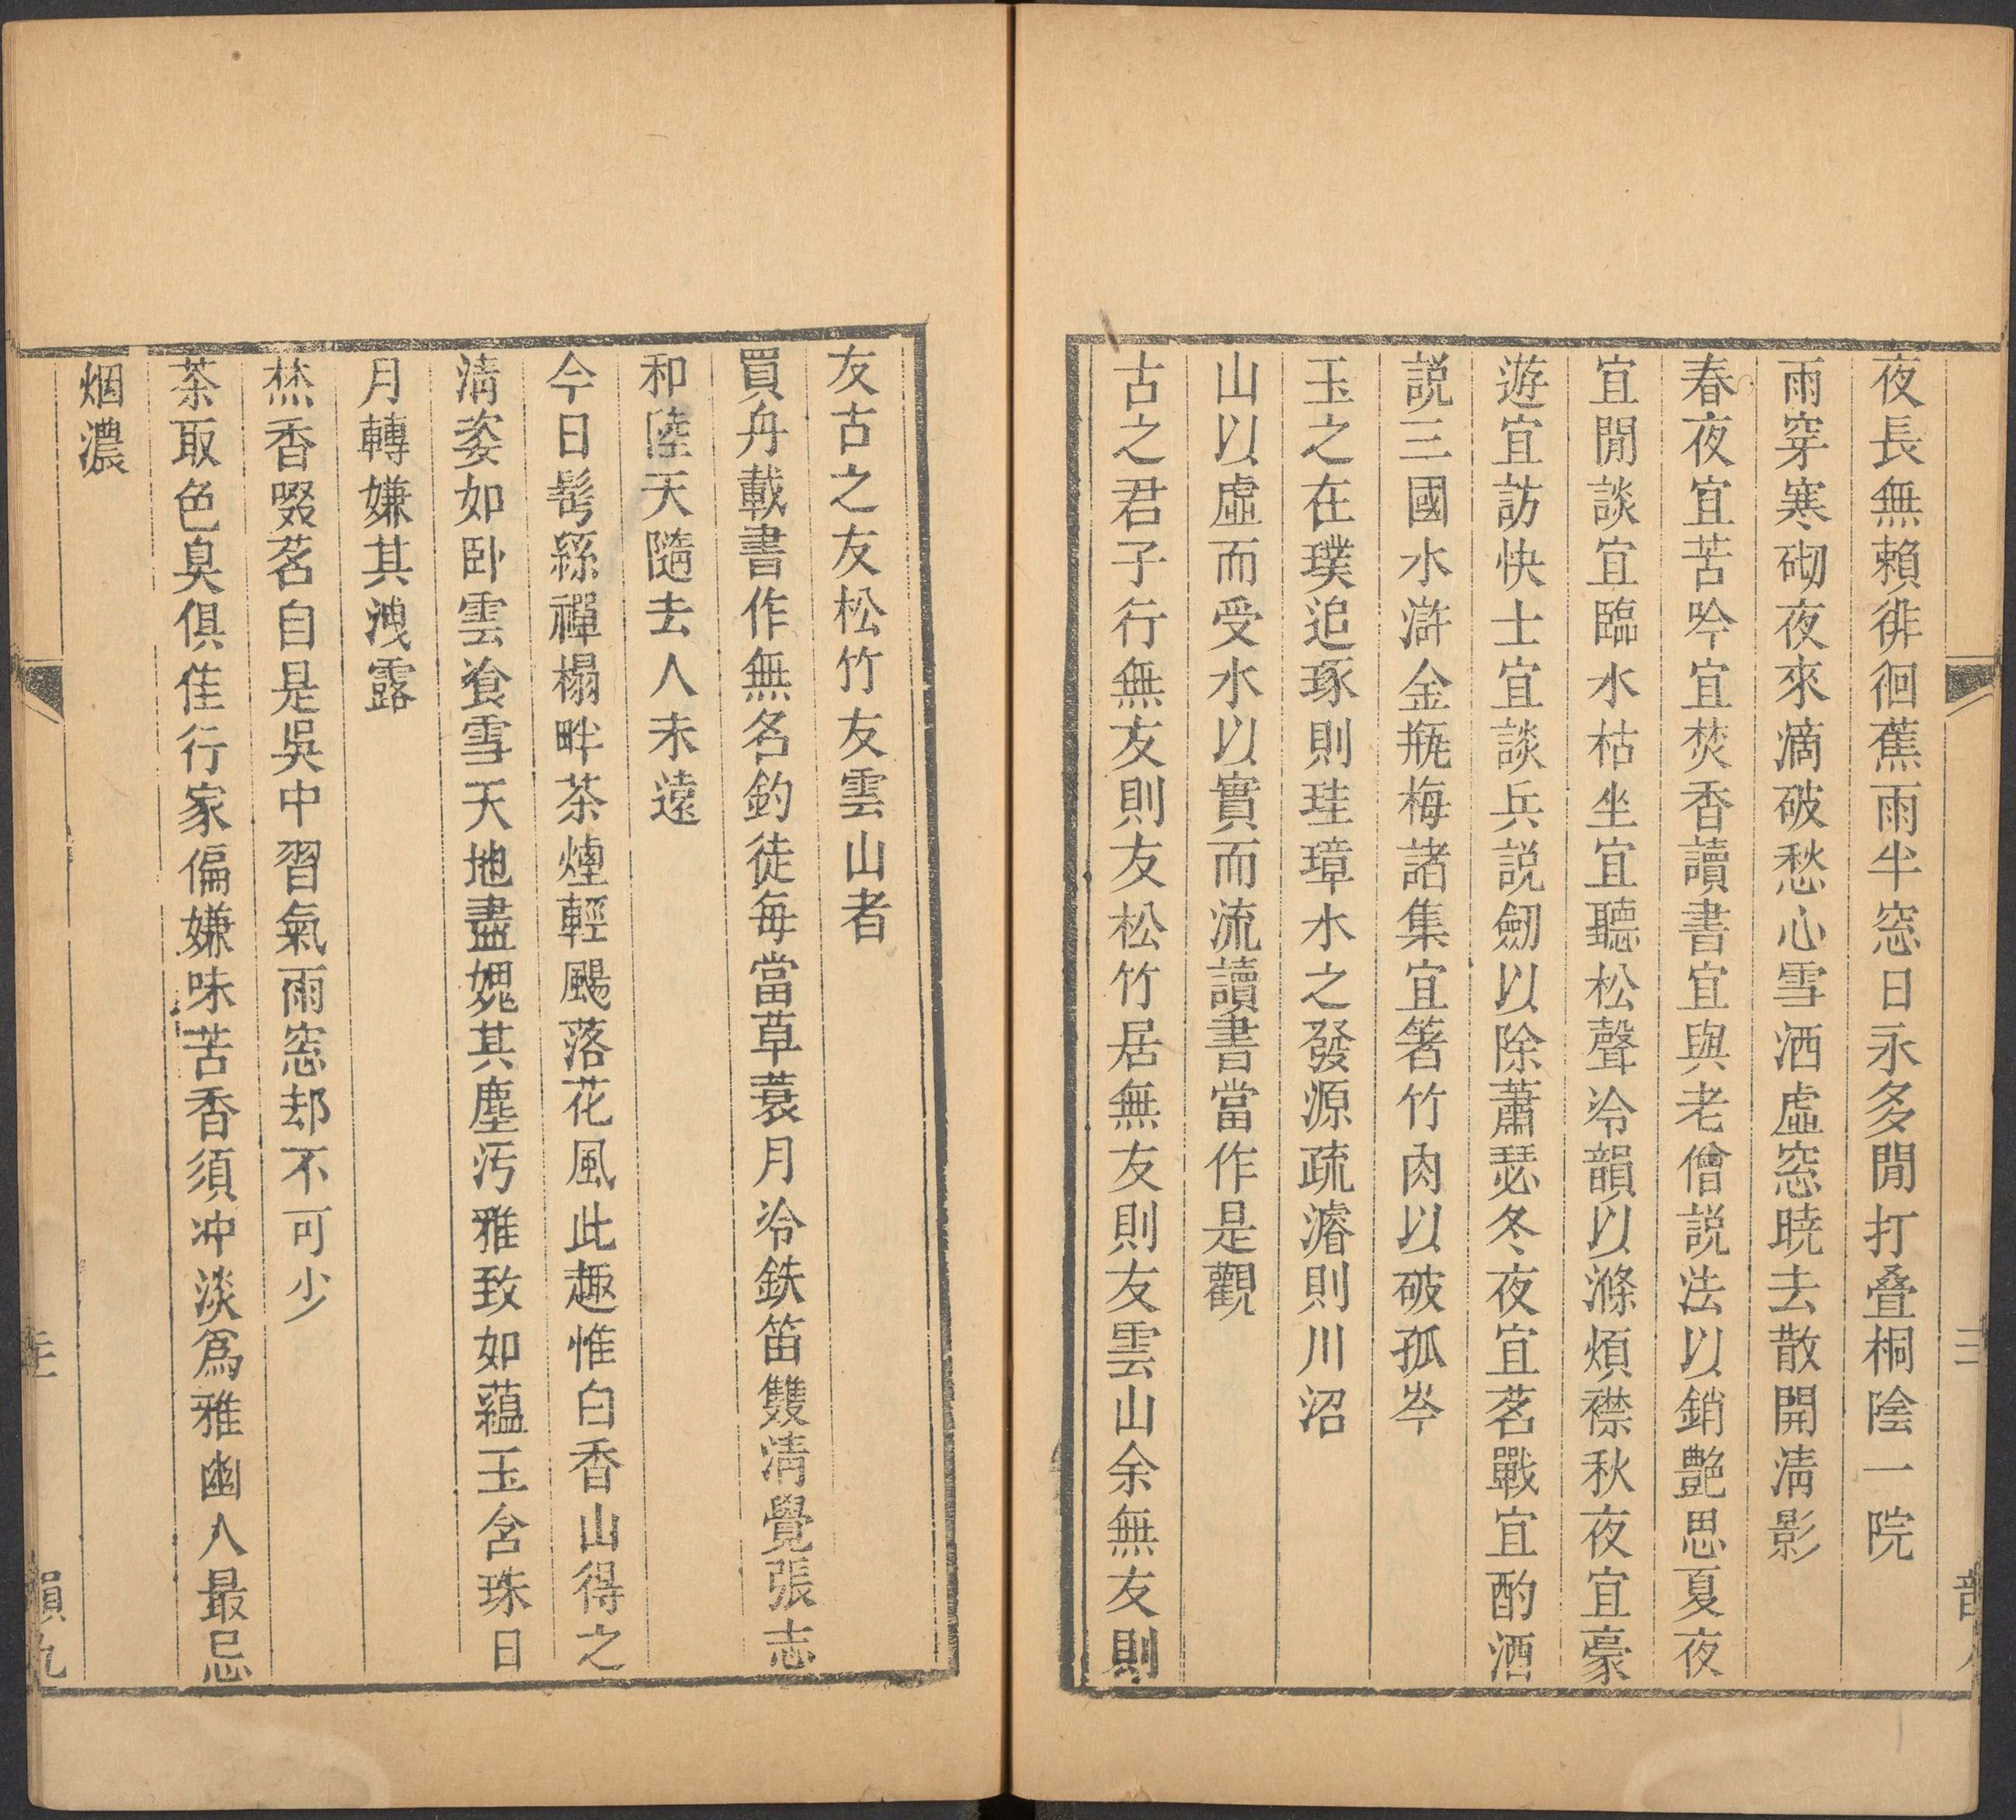 夜長無賴徘徊蕉雨半窓日永多閒打叠桐陰一院
雨穿寒砌夜來滴破愁心雪洒虛窓曉去散開淸影
春夜宜苦吟宜焚香讀書宜與老僧說法以銷艷思夏夜
宜閒談宜臨水枯坐宜聽松聲冷韻以滌煩襟秋夜宜豪
遊宜訪快士宜談兵說劒以除蕭瑟冬夜宜茗戰宜酌酒
說三國水滸金瓶梅諸集宜箸竹肉以破孤岑
玉之在璞追琢則珪璋水之發源疏濬則川沼
山以虛而受水以實而流讀書當作是觀
古之君子行無友則友松竹居無友則友雲山余無友則
友古之友松竹友雲山者
買舟載書作無名釣徒每當草蓑月冷鉄笛雙淸覺張志
和陸天隨去人未遠
今日髩絲禪榻畔茶煙輕颺落花風此趣惟白香山得之
淸姿如卧雲飡雪天地盡媿其塵汚雅致如蘊玉含珠日
月轉嫌其洩露
焚香啜茗自是吳中習氣雨窓却不可少
茶取色臭俱佳行家偏嫌味苦香須冲淡爲雅幽人最忌
烟濃